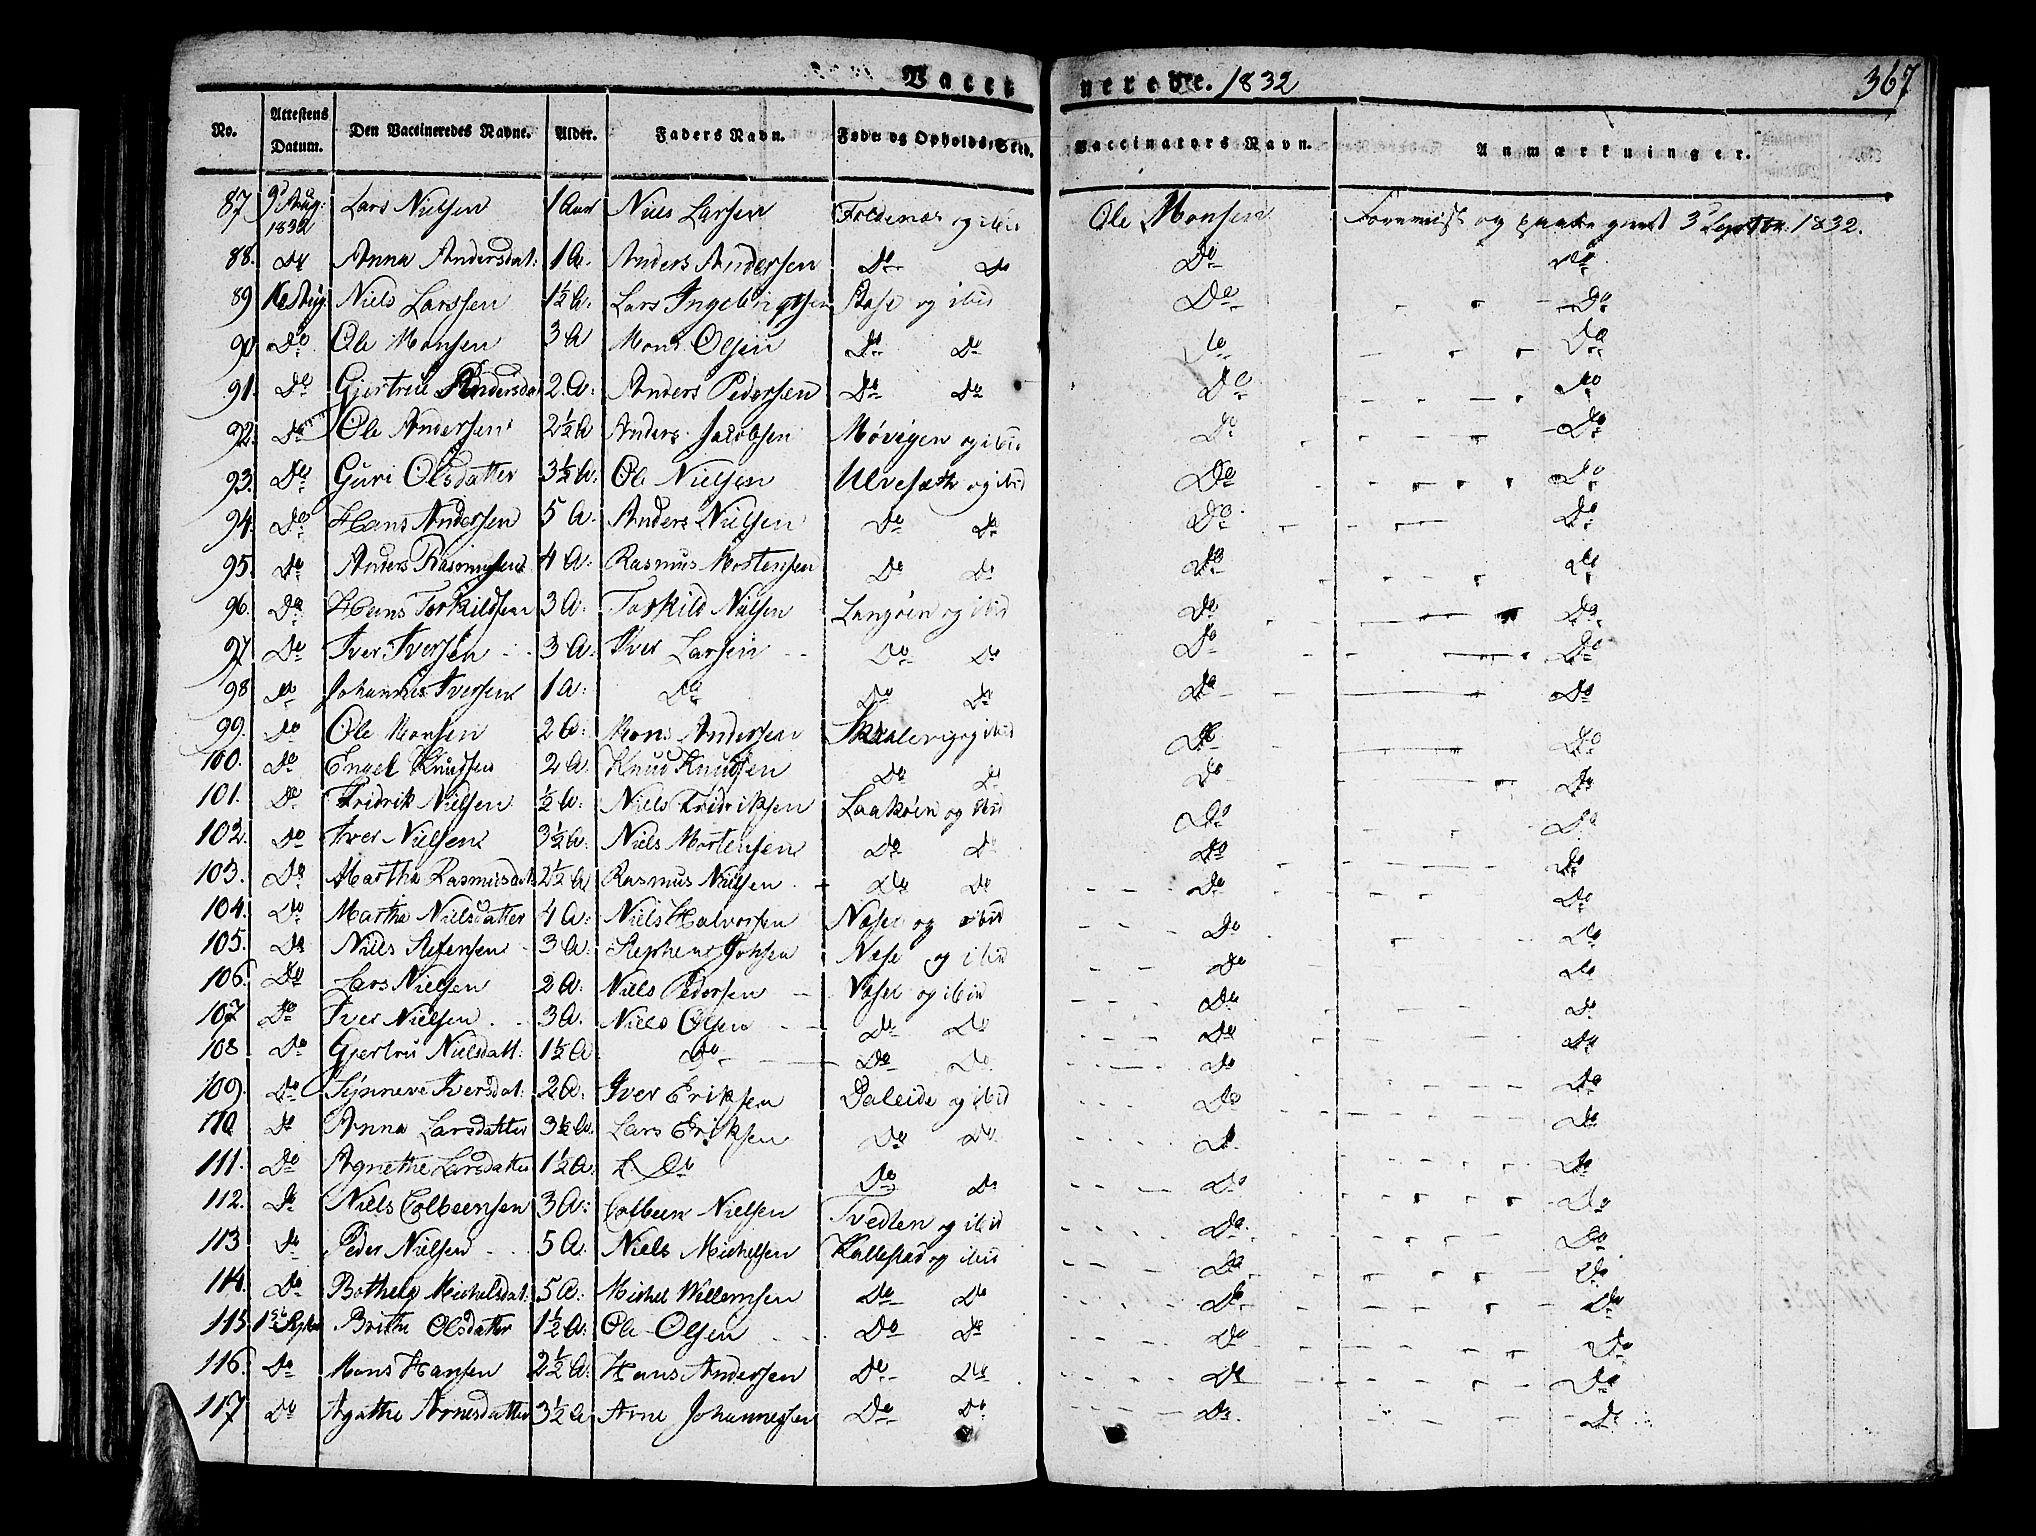 Vaccinerede. 1832 367
No. Attestens Datum. Den Vaccineredes Navne. Alder. Faders Navn. Føde- og Opholds-Sted. Vaccinators Navn. Anmærkninger.
87 9d Aug: 1832 Lars Nielsen 1 Aar Niels Larsen Foldenæs og ibid Ole Monsen Foreviist og 3d Septbr. 1832.
88. Do Anna Andersdat: 1 A. Anders Andersen Do Do Do Do
89 Niels Larssen 1½ A: Lars Ingebrigtsen og ibid Do Do
90 Do Ole Monsen 3 A Mons Olsen Do Do Do Do
91. Do Gjertrue Andersdat 2. A: Anders Pedersen Do Do Do Do
92. Do Ole Andersen 2½ A Anders Jacobsen Møvigen og ibid Do Do
93. Do Guri Olsdatter 3½ A: Ole Nielsen Ulvesæth og ibid Do Do
94. Do Hans Andersen 5 A. Anders Nielsen Do Do Do Do
95. Do Anders Rasmussen 4 A. Rasmus Mortensen Do Do Do Do
96. Do Hans Torkildsen 3 A. Torkild Nielsen Langøen og ibid Do Do
97 Do Iver Iversen 3 A: Iver Larsen Do Do Do Do
98 Do Johannes Iversen 1 A: Do Do Do Do Do
99. Do Ole Monsen 2 A: Mons Andersen Skalevig og ibid Do Do
100. Do Engel Knudsen 2 A: Knud Knudsen Do Do Do Do
101. Do Fridrik Nielsen ½ A: Niels Fridriksen Laakøen og ibid Do Do
102. Do Iver Nielsen 3½ A: Niels Mortensen Do Do Do Do
103. Do Martha Rasmusdat 2½ A Rasmus Nielsen Do Do Do Do
104. Do Martha Nielsdatter 4 A: Niels Halvorsen og ibid Do Do
105. Do Niels Stefensen 3 A: Stephen Johsen og ibid Do Do
106. Do Lars Nielsen 2 A: Niels Pedersen og ibid Do Do
107 Do Iver Nielsen 3 A. Niels Olsen Do Do Do Do
108 Do Gjertru Nielsdatt: 1½ A Do Do Do Do Do
109. Do Synneve Iversdat: 2 A: Iver Eriksen Daleide og ibid Do Do
110 Do Anna Larsdatter 3½ A. Lars Eriksen Do Do Do Do
111. Do Agnethe Larsdatter 1½ A: L. Do Do Do Do Do
112. Do Niels Colbeensen 3 A: Colbeen Nielsen Tvedten og ibid Do Do
113 Do Peder Nielsen 5 A: Niels Michelsen Kallestad og ibid Do Do
114. Do Bothele Michelsdat. 5 A: Michel Willemsen Do Do Do Do
115. 1ste Septbr Brithe Olsdatter 1½ A: Ole Olsen Do Do Do Do
116. Do Mons Hansen 2½ A: Hans Andersen Do Do Do Do
117 Do Agathe Arnesdatter 3½ A Arne Johannessen Do Do Do Do